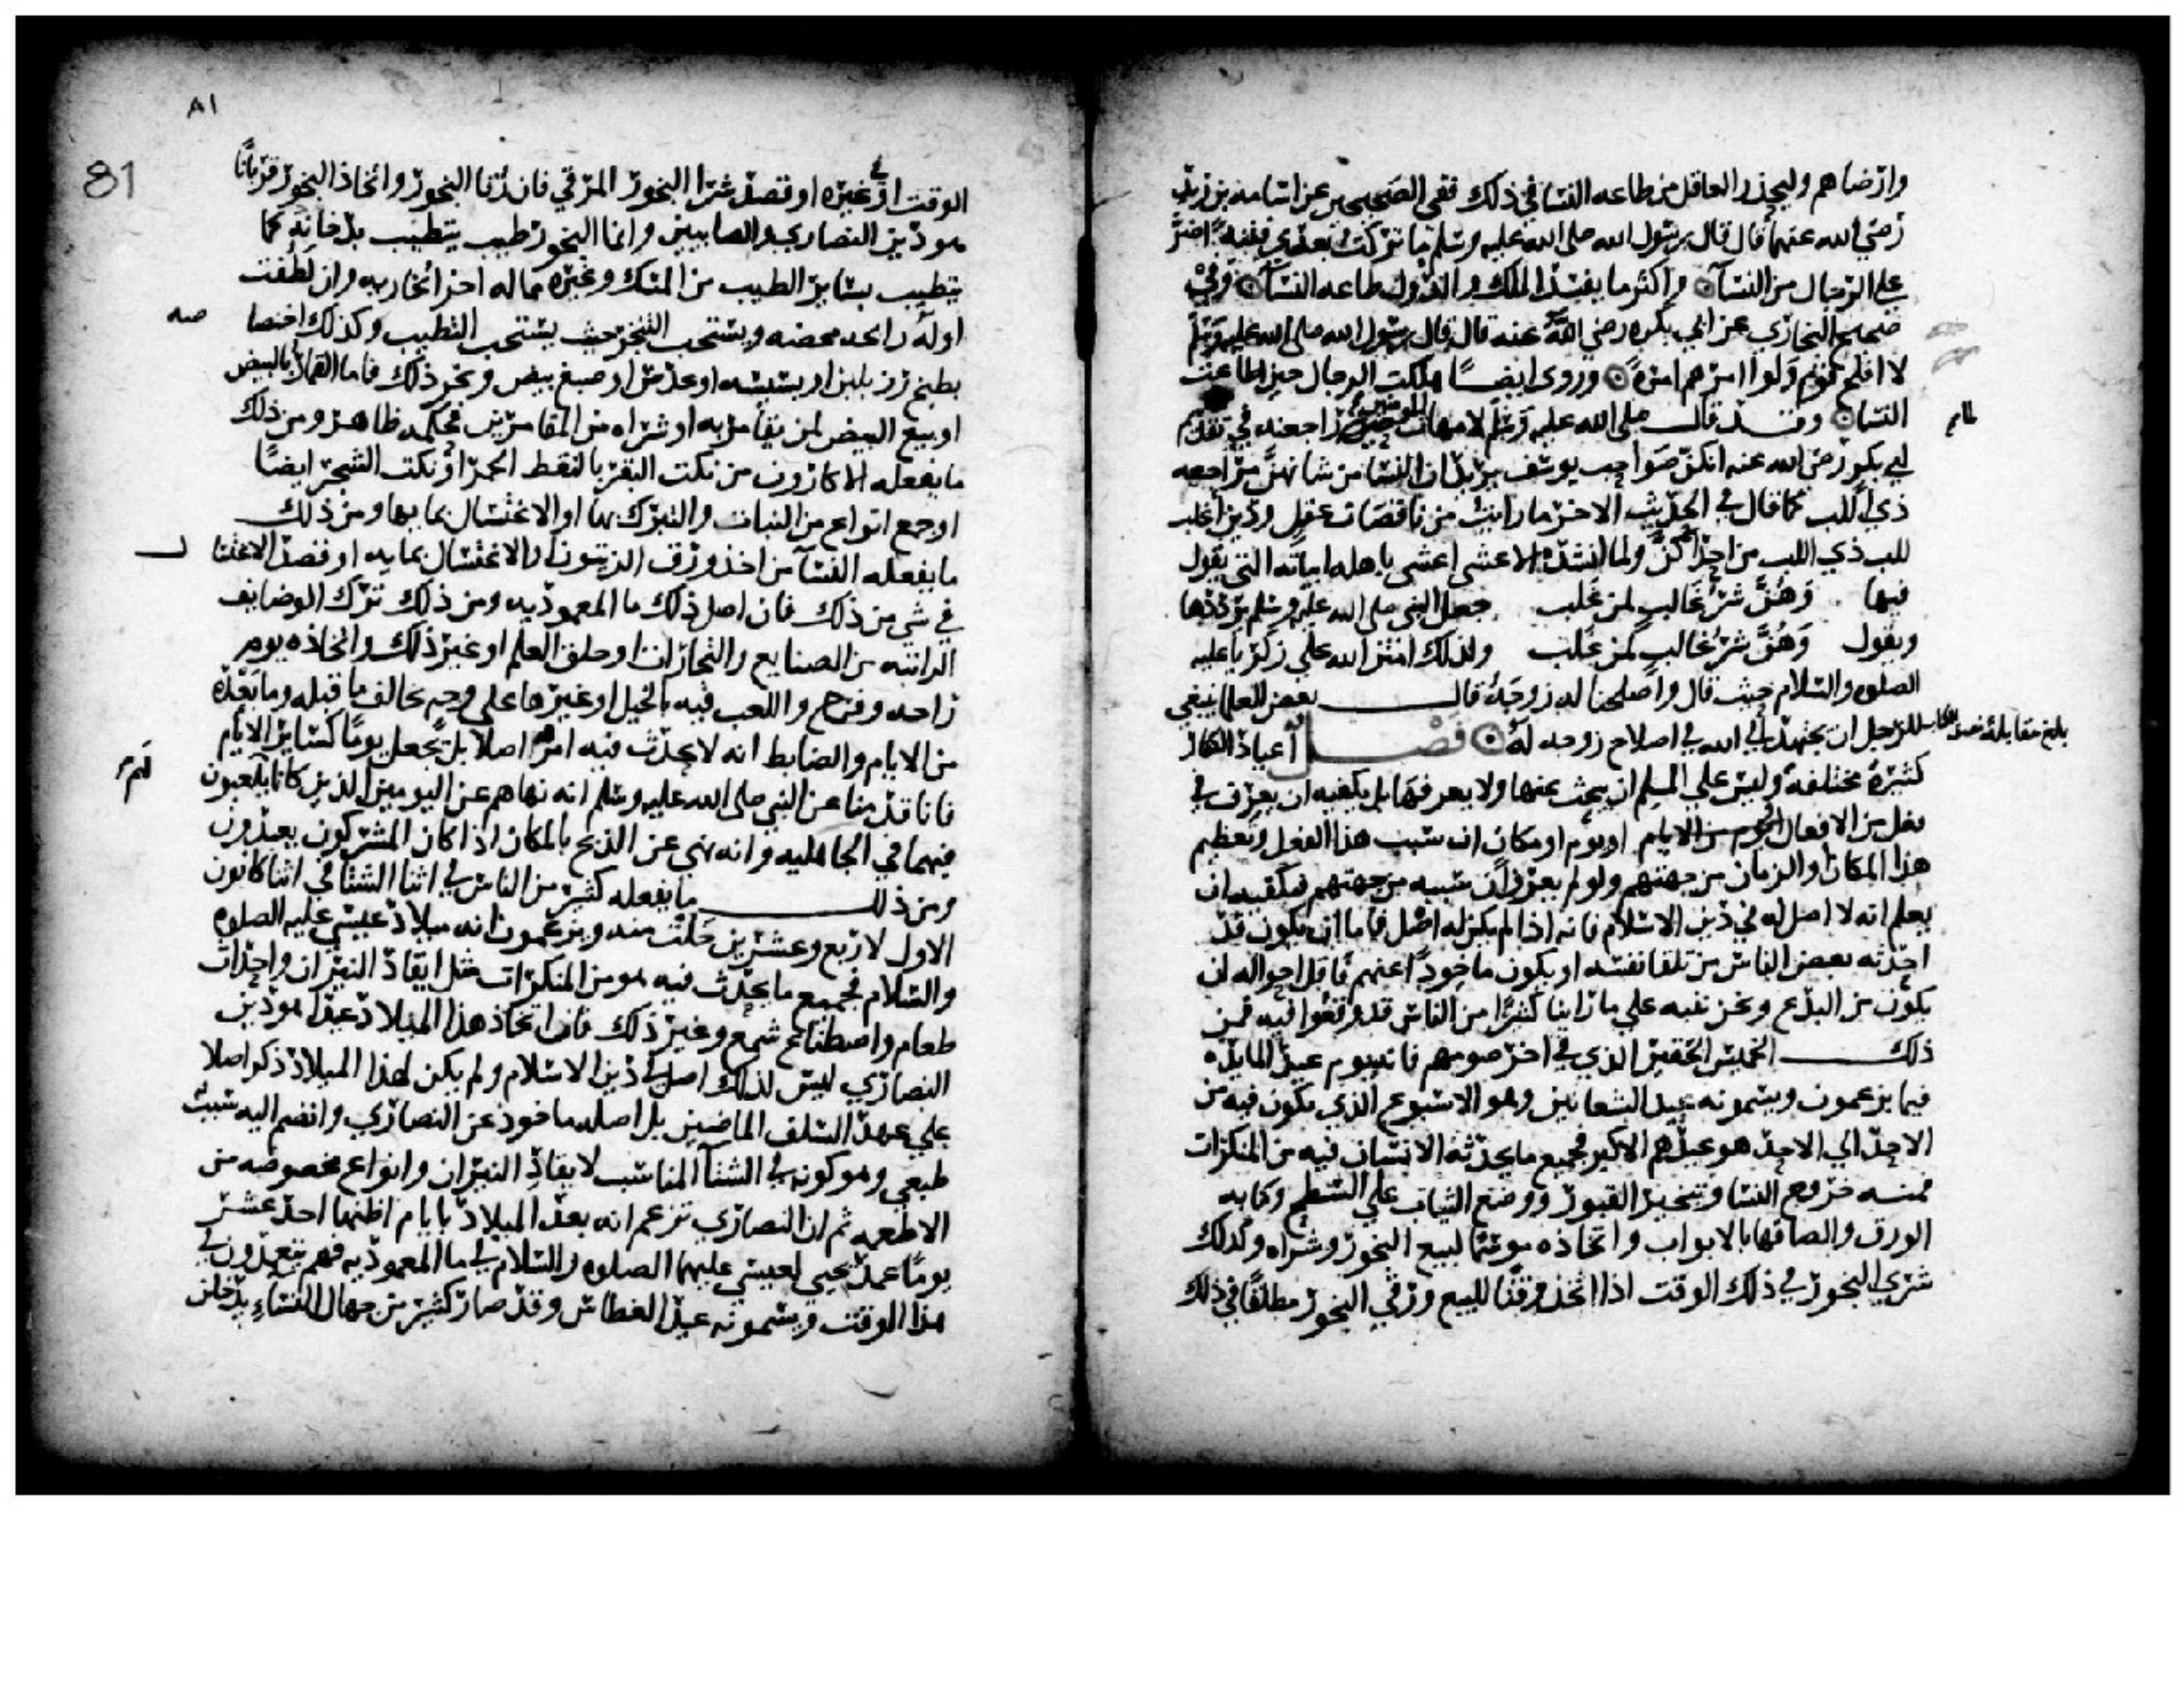 وارضاهم وليحذر العاقل من طاعه النسا في ذلك ففي الصحيحين عن اسامه بن زيد
رضي الله عنهما قال قال رسول الله صلى الله عليه وسلم ما تركت بعدي فتنة اضر
على الرجال من النساء واكثر ما يفسد الملك والدول طاعه النساء وفي
صحيح البخاري عن ابي بكره رضي الله عنه قال قال رسول الله صلى الله عليه وسلم
لا افلح قوم ولوا امرهم امرة وروى ايضا هلكت الرجال حين اطاعت
النسا وقد قال صلى الله عليه وسلم لامهات المومنين حين راجعنه في تقديم
ابي بكر رضي الله عنه انكن صواحب يوسف يريد ان النسا من شانهن مراجعه
ذي اللب كما قال في الحديث الاخر ما رايت من ناقصات عقل ودين اغلب
للب ذي اللب من احداكن ولما انشده الاعشى اعشى باهله ابياته التي يقول
فيها وهن شر غالب لمن غلب جعل النبي صلى الله عليه وسلم يرددها
ويقول وهن شر غالب لمن غلب ولذلك امتن الله على زكريا عليه
الصلوه والسلام حيث قال واصلحنا له زوجه قال بعض العلما ينبغي
للرجل ان يجتهد الي الله في اصلاح زوجه له فصل اعياد الكفار
بلغ مقابلة
كثيرة مختلفة وليس على المسلم ان يبحث عنها ولا يعرفها بل يكفيه ان يعرف في
فعل من الافعال او يوم او مكان ان سبب هذا الفعل وتعظيم
هذا المكان او الزمان من جهتهم ولو لم يعرف ان سببه من جهتهم فيكفيه ان
يعلم انه لا اصل له في دين الاسلام فانه اذا لم يكن له اصل فاما ان يكون قد
احدثه بعض الناس من تلقا نفسه او يكون ماخوذا عنهم فاقل احواله ان
يكون من البدع ونحن ننبه على ما راينا كثيرا من الناس قد وقعوا فيه فمن
ذلك الخميس الحقير الذي في اخر صومهم فانه يوم عيد المايده
فيما يزعمون ويسمونه عيد الشعانين وهو الاسبوع الذي يكون فيه من
الاحد الي الاحد هو عيدهم الاكبر فجميع ما يحدثه الانسان فيه من المنكرات
فمنه خروج النسا وتبخير القبور ووضع الثياب على السطح وكتابه
الورق والصاقها بالابواب واتخاذه موسما لبيع البخور وشراه وكذلك
شري البخور في ذلك الوقت اذا اتخذ وقتا للبيع ورقي البخور مطلقا في ذلك
٨١
81
الوقت او في غيره او قصد شرا البخور المرقي فان رقا البخور واتخاذ البخور قربانا
هو دين النصارى والصابيين وانما البخور طيب يتطيب بدخانه كما
يتطيب بساير الطيب من المسك وغيره مما له اجزا بخاريه وان لطفت
او له رائحه محضه ويستحب التبخر حيث يستحب التطيب وكذلك اختصاصه
بطبخ رز بلبن او بسيسه او عدس او صبغ بيض ونحو ذلك فاما القمار بالبيض
او بيع البيض لمن يقامر به او شراه من المقامرين فحكمه ظاهر ومن ذلك
ما يفعله الاكارون من نكت البقر بالنقط الحمر او نكت الشجر ايضا
او جمع انواع من النبات والتبرك بها او الاغتسال بمايها ومن ذلك
ما يفعله النسا من اخذ ورق الزيتون او الاغتسال بمايه او قصد الاغتسال
في شي من ذلك فان اصل ذلك ما المعموديه ومن ذلك ترك الوضايف
الراتبه من الصنايع والتجارات او حلق العلم او غير ذلك واتخاذه يوم
راحه وفرح واللعب فيه بالخيل او غيرها على وجه يخالف ما قبله وما بعده
من الايام والضابط انه لا يحدث فيه امر اصلا بل يجعل يوما كساير الايام
فانا قدمنا عن النبي صلى الله عليه وسلم انه نهاهم عن اليومين الذين كانا يلعبون
فيهما في الجاهليه وانه نهى عن الذبح بالمكان اذا كان المشركون يعيدون
ومن ذلك ما يفعله كثير من الناس في اثنا الشتا في اثنا كانون
الاول لاربع وعشرين خلت منه ويزعمون انه ميلاد عيسى عليه الصلوه
والسلام فجميع ما يحدث فيه هو من المنكرات مثل ايقاد النيران واحداث
طعام واصطناع شمع وغير ذلك فان اتخاذ هذا الميلاد عيدا هو دين
النصارى ليس لذلك اصل في دين الاسلام ولم يكن لهذا الميلاد ذكر اصلا
على عهد السلف الماضين بل اصله ماخوذ عن النصارى وانضم اليه سبب
طبعي وهو كونه في الشتا المناسب لايقاد النيران وانواع مخصوصه من
الاطعمه ثم ان النصارى تزعم انه بعد الميلاد بايام اظنها احد عشر
يوما عمد يحيى لعيسى عليهما الصلوه والسلام في ما المعموديه فهم يتعمدون في
هذا الوقت ويسمونه عيد الغطاس وقد صار كثير من جهال النساء يدخلن